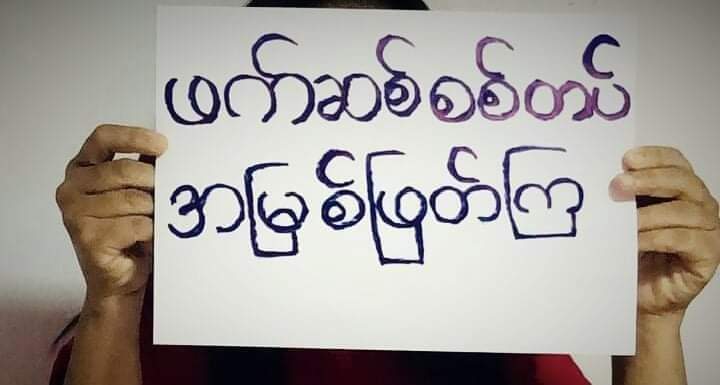 ဖက်ဆစ်စစ်တပ်
အမြစ်ဖြုတ်ကြ